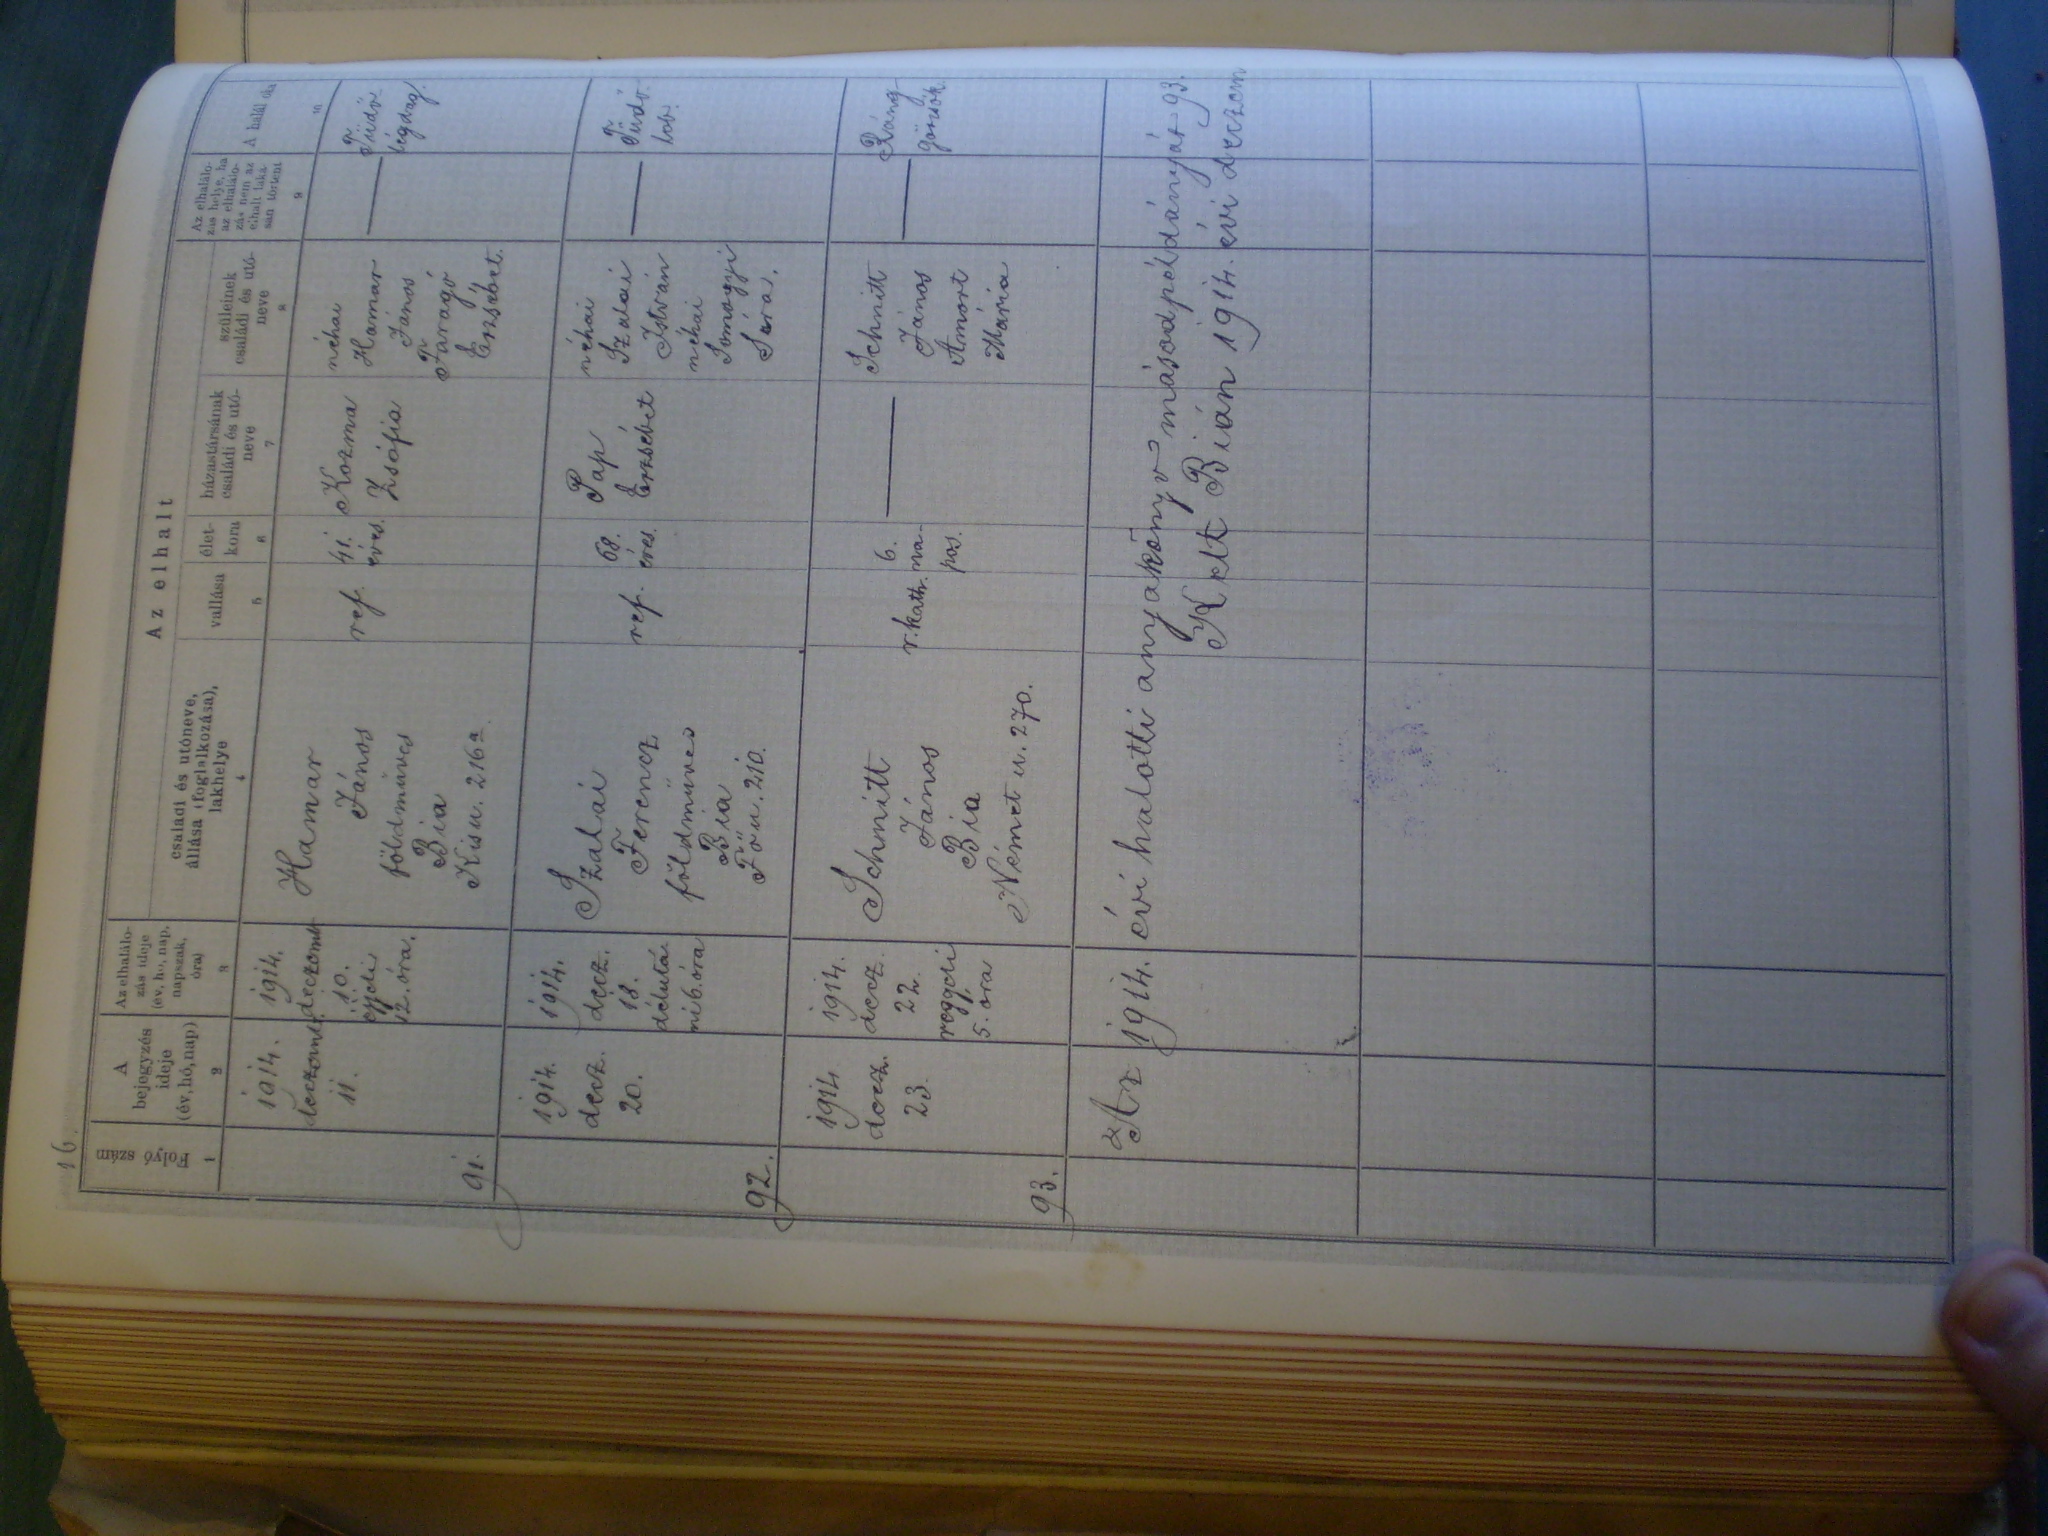 16.
Az elhalt
Folyó szám
1
A
bejegyzés
ideje
(év, hó, nap)
2
Az elhaláló-
zás ideje
(év, hó, nap,
napszak,
óra)
3
családi és utóneve,
állása (foglalkozása),
lakhelye
4
vallása
5
élet-
kora
6
házastársának
családi és utó-
neve
7
szüleinek
családi és utó-
neve
8
Az elhaláló-
zás helye, ha
az elhaláló-
zás nem az
elhalt laká-
sán történt
9
A halál oka
10
91.
1914.
deczemb.
11.
1914.
deczemb.
10.
éjjeli
12. óra.
Hamar
János
földmüves
Bia
Kis u. 216a
ref.
41.
éves.
Kozma
Zsófia
néhai
Hamar
János
Faragó
Erzsébet.
Tüdő-
légdag.
92.
1914.
decz.
20.
1914.
decz.
18.
délutá-
ni 6. óra
Szalai
Ferencz
földmüves
Bia
Fő u. 210.
ref.
68.
éves.
Pap
Erzsébet
néhai
Szalai
István
néhai
Somogyi
Sára.
Tüdő-
lob.
93.
1914
decz.
23.
1914.
decz.
22.
reggeli
5. óra
Schmitt
János
Bia
Német u. 270.
r. kath.
6.
na-
pos.
Schmitt
János
Amort
Mária
Ráng
görcsök
Az 1914. évi halotti anyakönyv másodpéldányát 93.
Kelt Bián 1914. évi deczem